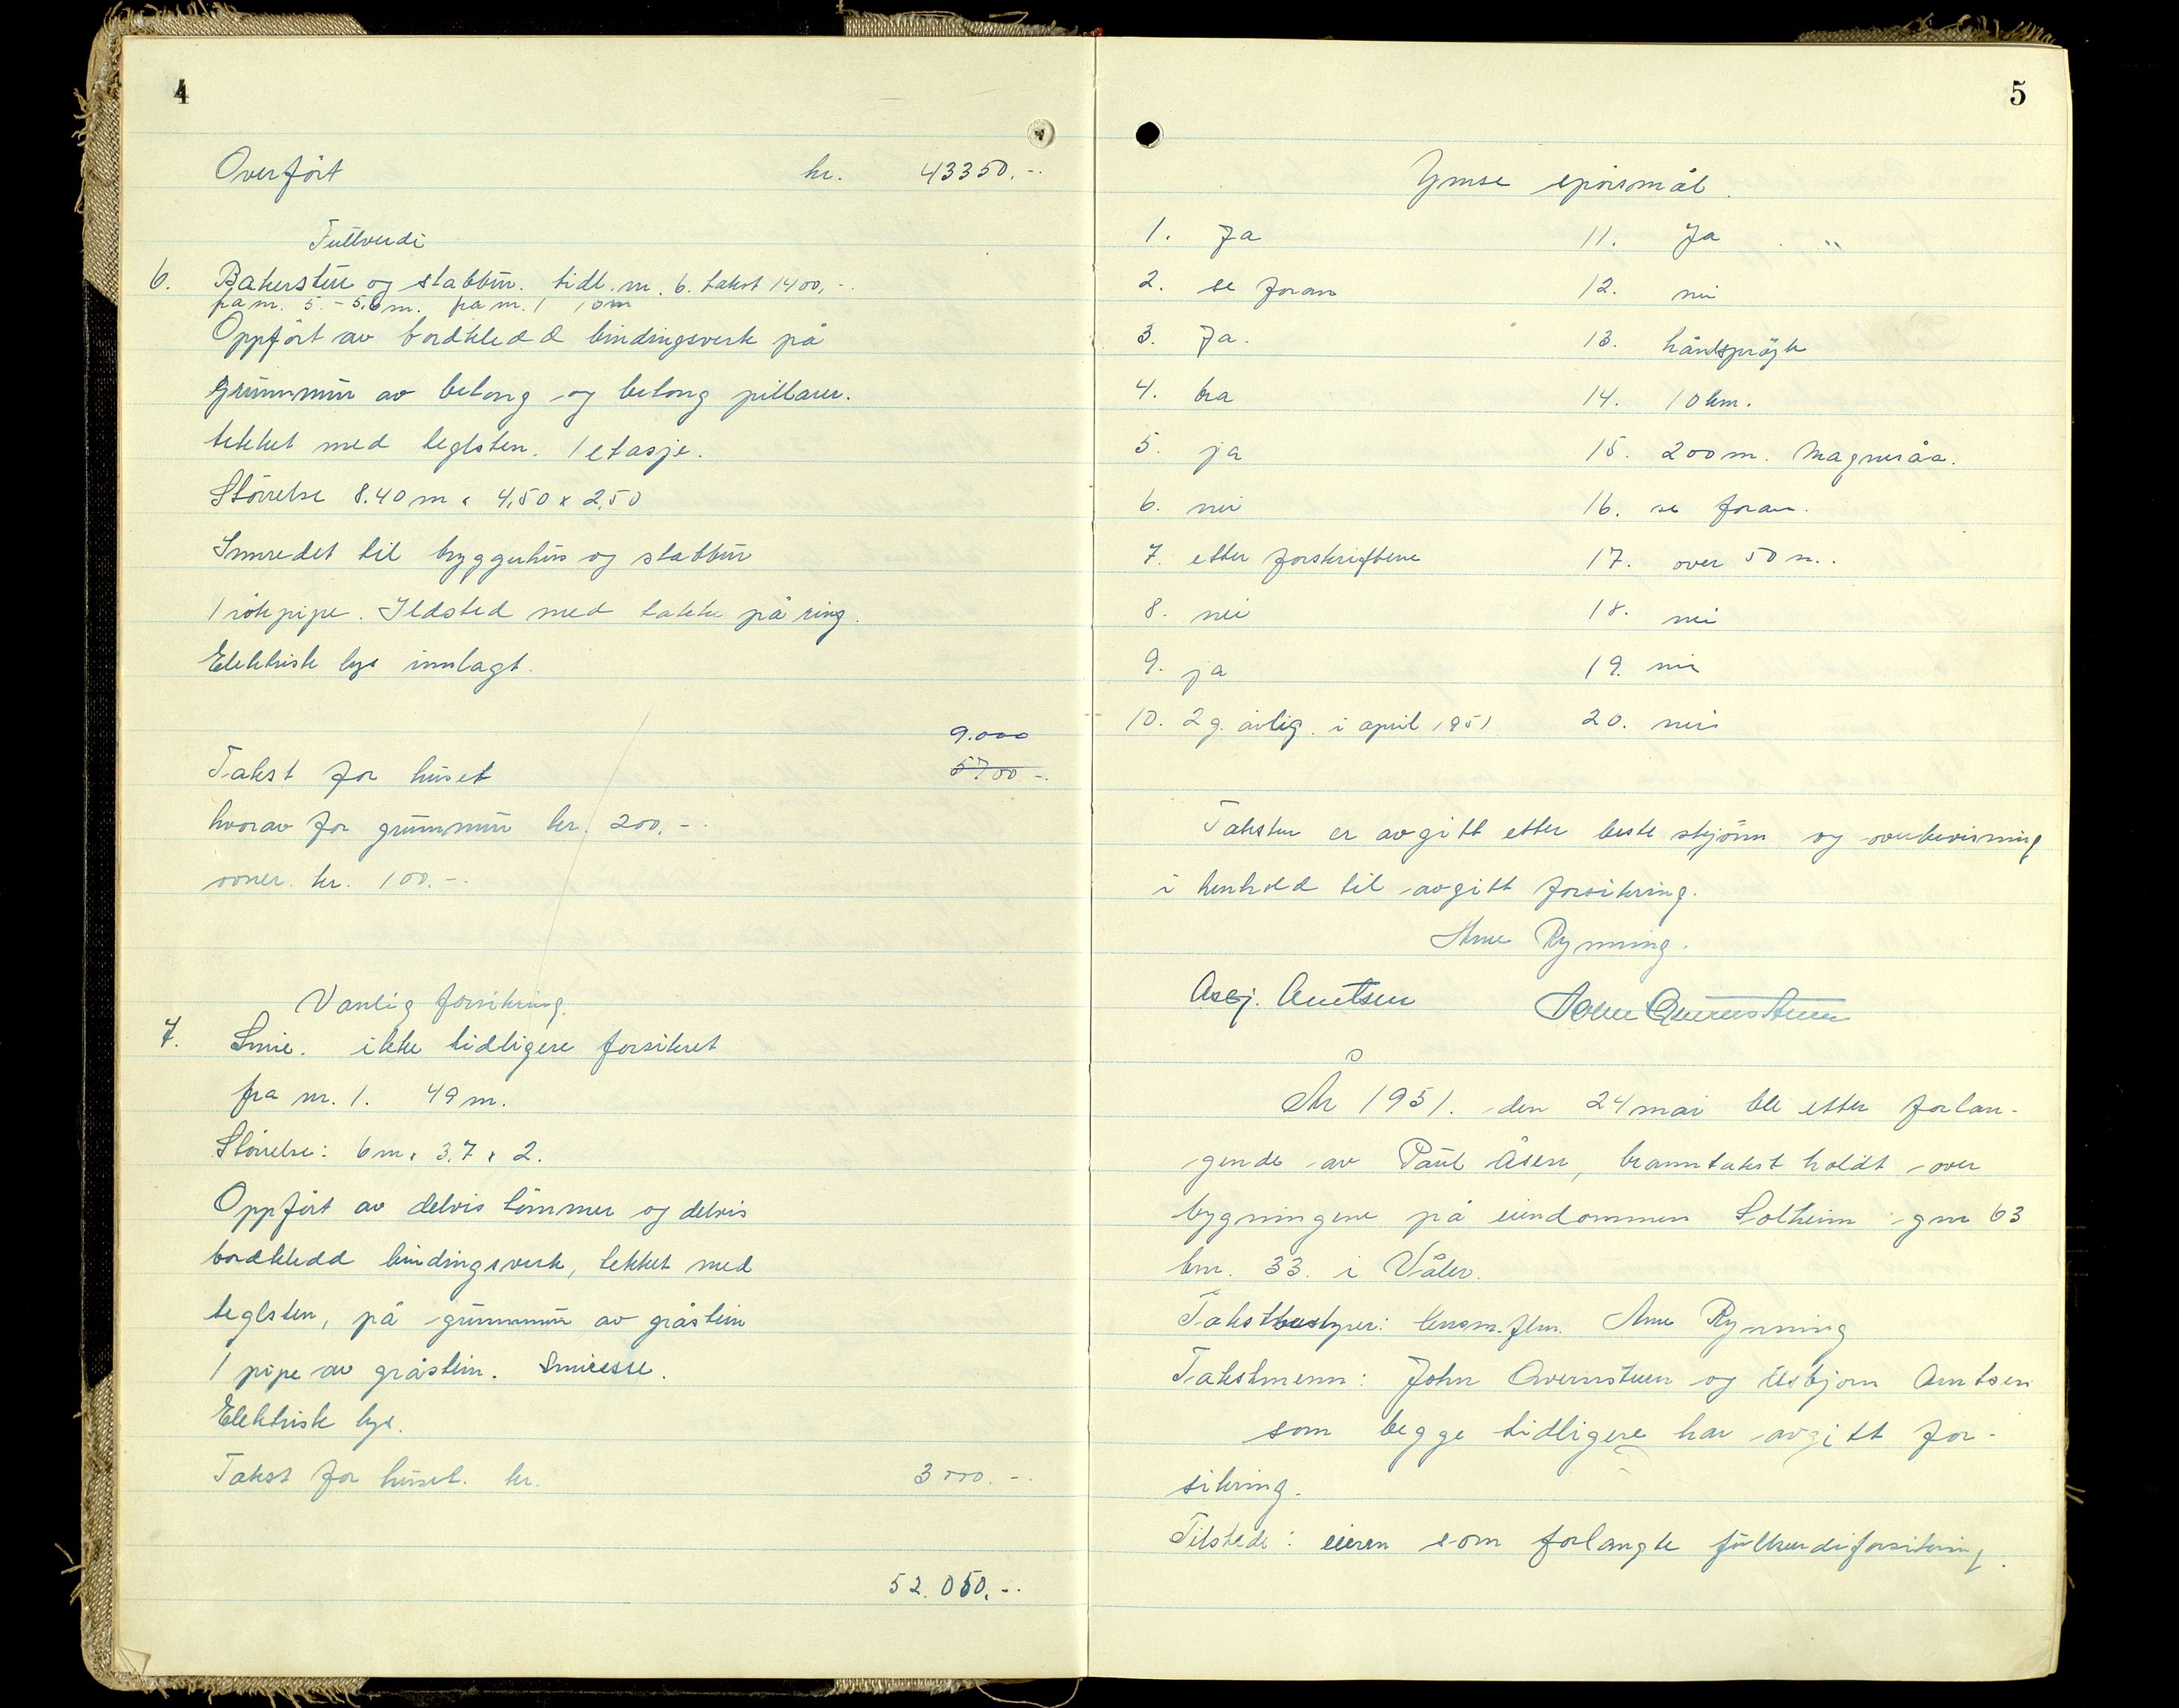 4
Overført kr. 43350.-
Fullverdi
6. Bakerstue og stabbur. tidl. nr. 6. takst 1400,-
fra nr. 5 - 5,6 m. fra nr. 1 10 m
Oppført av bordkledd bindingsverk på
grunnmur av betong og betong pillarer.
tekket med teglsten. 1 etasje.
Størrelse 8.40 m x 4,50 x 2,50
Innredet til bryggerhus og stabbur
1 rökpipe. Ildsted med takke på ring.
Elektrisk lys innlagt.
9.000
Takst for huset 5700 -.
hvorav for grunnmur kr. 200.-
ovner. kr. 100.-
Vanlig forsikring.
7. Smie. ikke tidligere forsikret
fra nr. 1. 49 m.
Størrelse: 6 m x 3.7 x 2.
Oppført av delvis tømmer og delvis
bordkledd bindingsverk, tekket med
teglsten, på grunnmur av gråstein
1 pipe av gråstein. Smiesse.
Elektrisk lys.
Takst for huset. kr. 3000.-
52.050.-
5
Ymse spørsmål.
1. Ja 11. Ja "
2. se foran 12. nei
3. Ja. 13. håndsprøyte
4. bra 14. 10 km.
5. ja 15. 200 m. Magneråa.
6. nei 16. se foran.
7. etter forskriftene 17. over 50 m.
8. nei 18. nei
9. ja 19. nei
10. 2 g. årlig. i april 1951 20. nei
Taksten er avgitt etter beste skjønn og overbevisning
i henhold til avgitt forsikring.
Arne Rynning.
Asbj. Arntsen John Overnstuen
År 1951. den 24 mai ble etter forlan-
gende av Paul Åsen, branntakst holdt over
bygningene på eiendommen Solheim gnr 63
bnr. 33. i Våler.
Takstbestyrer: lensm.flm. Arne Rynning
Takstmenn: John Overnstuen og Asbjørn Arntsen
som begge tidligere har avgitt for-
sikring.
Tilstede: eieren som forlangte fullverdiforsikring.